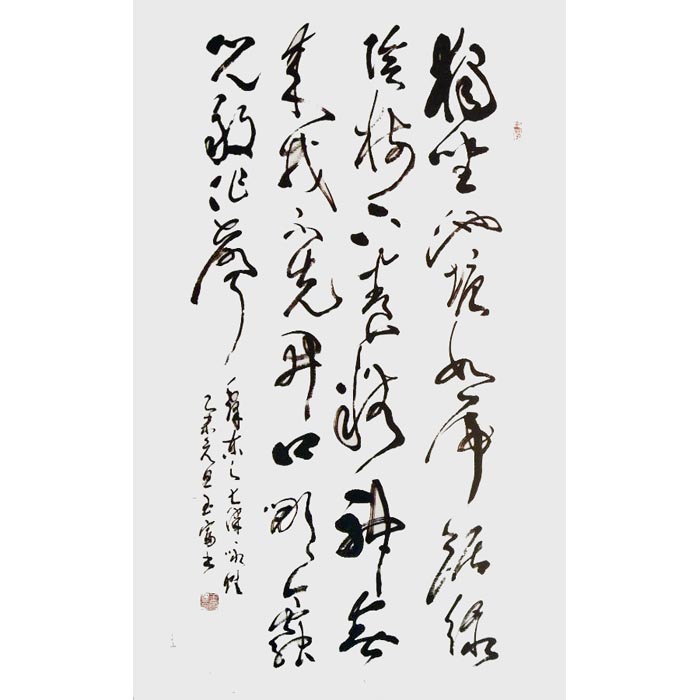 獨坐池塘如虎踞绿
陰树下養精神春
来我不先开口哪个蟲
兒敢作聲
毛泽东之七律咏蛙
乙未元旦玉富书